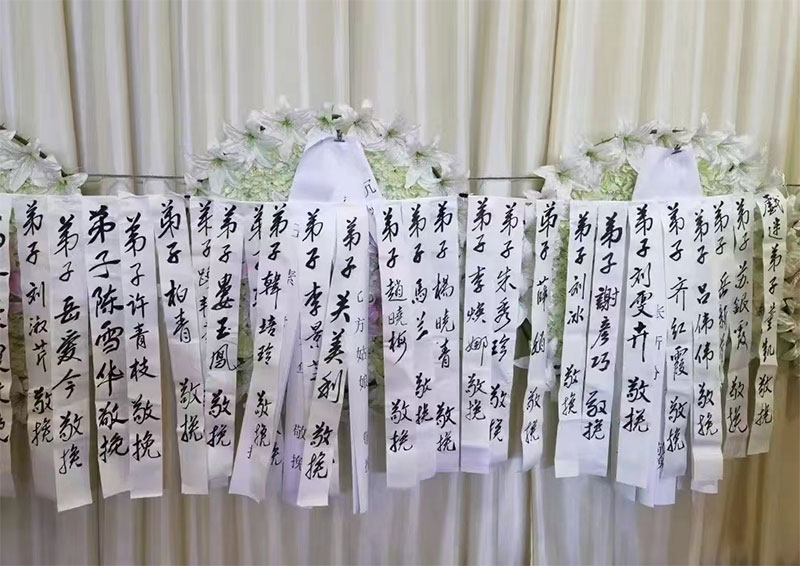 弟子 刘淑芹 敬挽
弟子 岳爱今 敬挽
弟子 陈雪华 敬挽
弟子 许青枝 敬挽
弟子 柏青 敬挽
弟子
弟子 娄玉凤 敬挽
弟子
弟子 韩培玲 敬挽
弟子 李景兰 敬挽
弟子 关美利 敬挽
弟子 趙晓梅 敬挽
弟子 马兰 敬挽
弟子 杨晓青 敬挽
弟子 李焕娜 敬挽
弟子 朱秀珍 敬挽
弟子 薛娟 敬挽
弟子 刘冰 敬挽
弟子 謝彦巧 敬挽
弟子 刘雯卉 敬挽
弟子 齐红霞 敬挽
弟子 吕伟伟 敬挽
弟子 岳
弟子 苏银霞 敬挽
戲迷弟子 董凯 敬挽